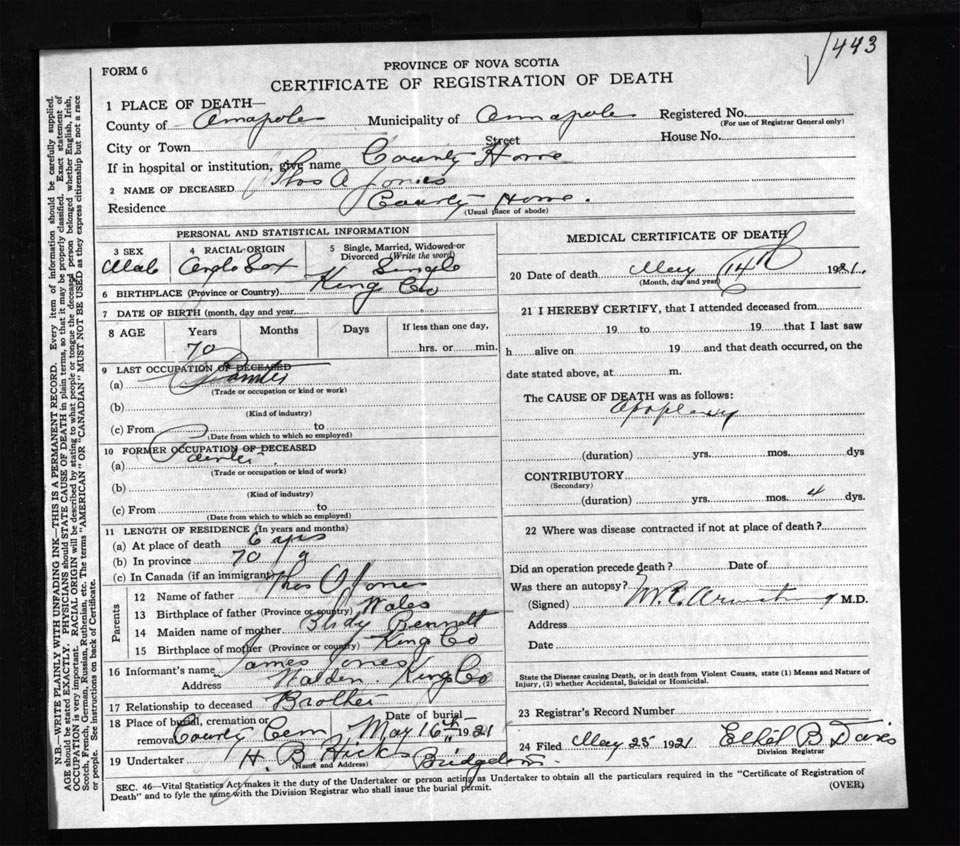 443
FORM 6
PROVINCE OF NOVA SCOTIA
CERTIFICATE OF REGISTRATION OF DEATH
1 PLACE OF DEATH—
County of Annapolis Municipality of Annapolis Registered No.
(For use of Registrar General only)
City or Town Street House No.
If in hospital or institution, give name County Home
2 NAME OF DECEASED Thos A Jones
Residence County Home.
(Usual place of abode)
PERSONAL AND STATISTICAL INFORMATION
3 SEX 4 RACIAL ORIGIN 5 Single, Married, Widowed or Divorced (Write the word)
Male Anglo Sax Single
6 BIRTHPLACE (Province or Country) King Co
7 DATE OF BIRTH (month, day and year)
8 AGE Years Months Days If less than one day,
70 hrs. or min.
9 LAST OCCUPATION OF DECEASED
(a) Painter
(Trade or occupation or kind or work)
(b)
(Kind of industry)
(c) From to
(Date from which to which so employed)
10 FORMER OCCUPATION OF DECEASED
(a) Painter
(Trade or occupation or kind or work)
(b)
(Kind of industry)
(c) From to
(Date from which to which so employed)
11 LENGTH OF RESIDENCE (In years and months)
(a) At place of death 6
(b) In province 70
(c) In Canada (if an immigrant)
Parents
12 Name of father Thos Jones
13 Birthplace of father (Province or country) Wales
14 Maiden name of mother Bennett
15 Birthplace of mother (Province or country) King Co
16 Informant's name James Jones
Address Walden King Co
17 Relationship to deceased Brother
18 Place of burial, cremation or removal County Cem Date of burial— May 16th 1921
19 Undertaker H. B Hicks
(Name and Address)
MEDICAL CERTIFICATE OF DEATH
20 Date of death May 14th 1921.
(Month, day and year)
21 I HEREBY CERTIFY, that I attended deceased from
19 to 19 that I last saw
h alive on 19 and that death occurred, on the
date stated above, at m.
The CAUSE OF DEATH was as follows:
Apoplexy
(duration) yrs. mos. dys
CONTRIBUTORY
(Secondary)
(duration) yrs. mos. 4 dys.
22 Where was disease contracted if not at place of death?
Did an operation precede death? Date of
Was there an autopsy?
(Signed) Armstrong M.D.
Address
Date
State the Disease causing Death, or in death from Violent Causes, state (1) Means and Nature of
Injury, (2) whether Accidental, Suicidal or Homicidal.
23 Registrar's Record Number
24 Filed May 25 1921 B
Division Registrar
SEC. 46—Vital Statistics Act makes it the duty of the Undertaker or person acting as Undertaker to obtain all the particulars required in the "Certificate of Registration of
Death" and to fyle the same with the Division Registrar who shall issue the burial permit.
(OVER)
N.B.—WRITE PLAINLY WITH UNFADING INK—THIS IS A PERMANENT RECORD. Every item of information should be carefully supplied.
AGE should be stated EXACTLY. PHYSICIANS should STATE CAUSE OF DEATH in plain terms, so that it may be properly classified. Exact statement of
OCCUPATION is very important. RACIAL ORIGIN will be described by stating to what people or tongue the deceased person belonged whether English, Irish,
Scotch, French, German, Russian, Ruthenian, etc. The terms "AMERICAN" OR "CANADIAN" MUST NOT BE USED as they express citizenship but not a race
or people. See instructions on back of Certificate.